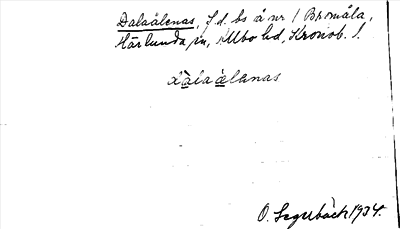 Dalaälenas, f.d. bs å nr 1 Bromåla,
Härlunda sn, Allbo hd, Kronob. l.
dàlaälanas
O. Sagebäck 1934.